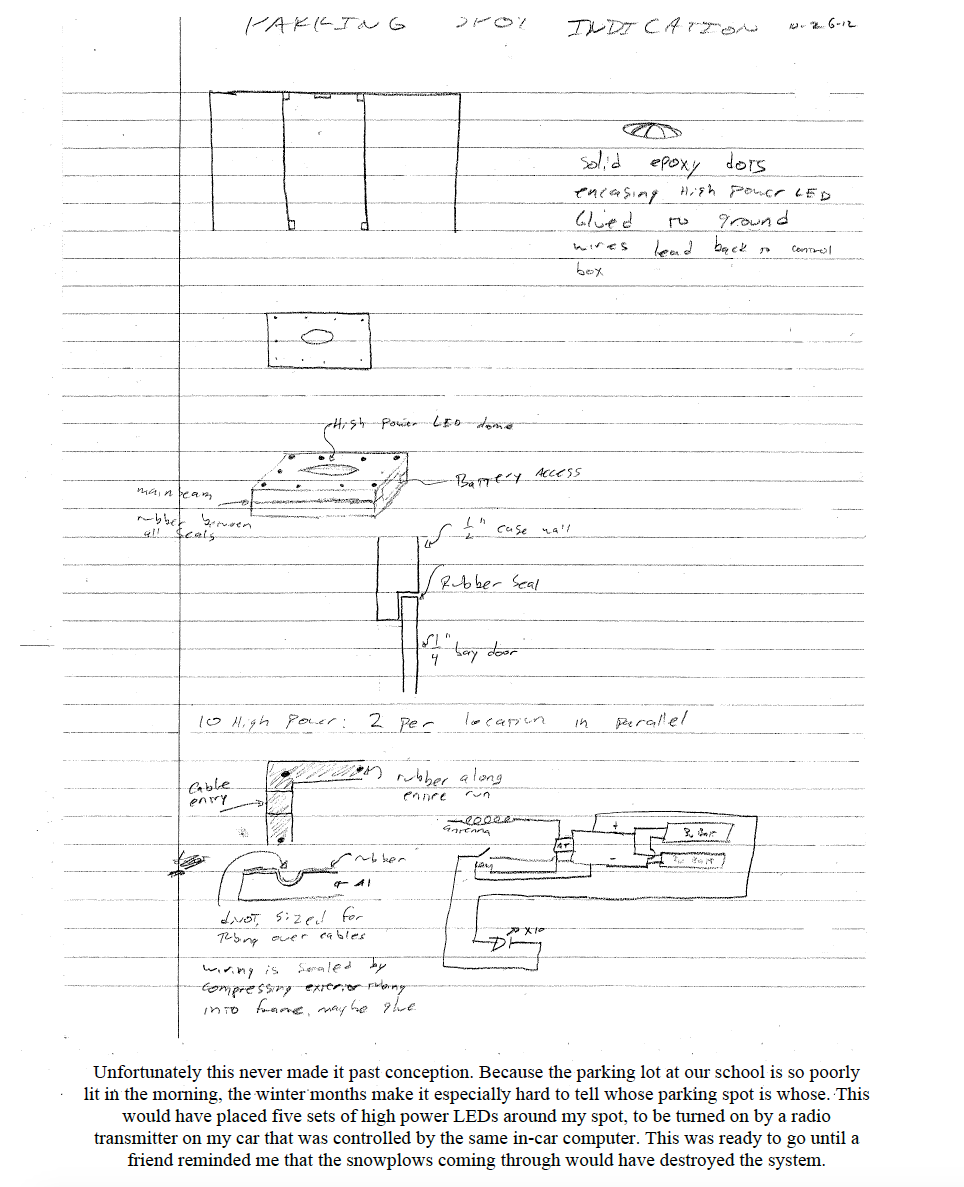 PARKING SPOT INDICATION 10-26-12
Solid epoxy dots
encasing High Power LED
Glued to ground
wires lead back to control
box
High Power LED dome
Battery Access
main beam
rubber between
all seals
1/2" case wall
Rubber Seal
1/4" bay door
10 High Power: 2 per location in parallel
Cable
entry
rubber along
entire run
antenna
AT
+
-
rubber
Al
divot, sized for
Tubing over cables
x10
wiring is sealed by
compressing exterior tubing
into frame, maybe glue
Unfortunately this never made it past conception. Because the parking lot at our school is so poorly
lit in the morning, the winter months make it especially hard to tell whose parking spot is whose. This
would have placed five sets of high power LEDs around my spot, to be turned on by a radio
transmitter on my car that was controlled by the same in-car computer. This was ready to go until a
friend reminded me that the snowplows coming through would have destroyed the system.